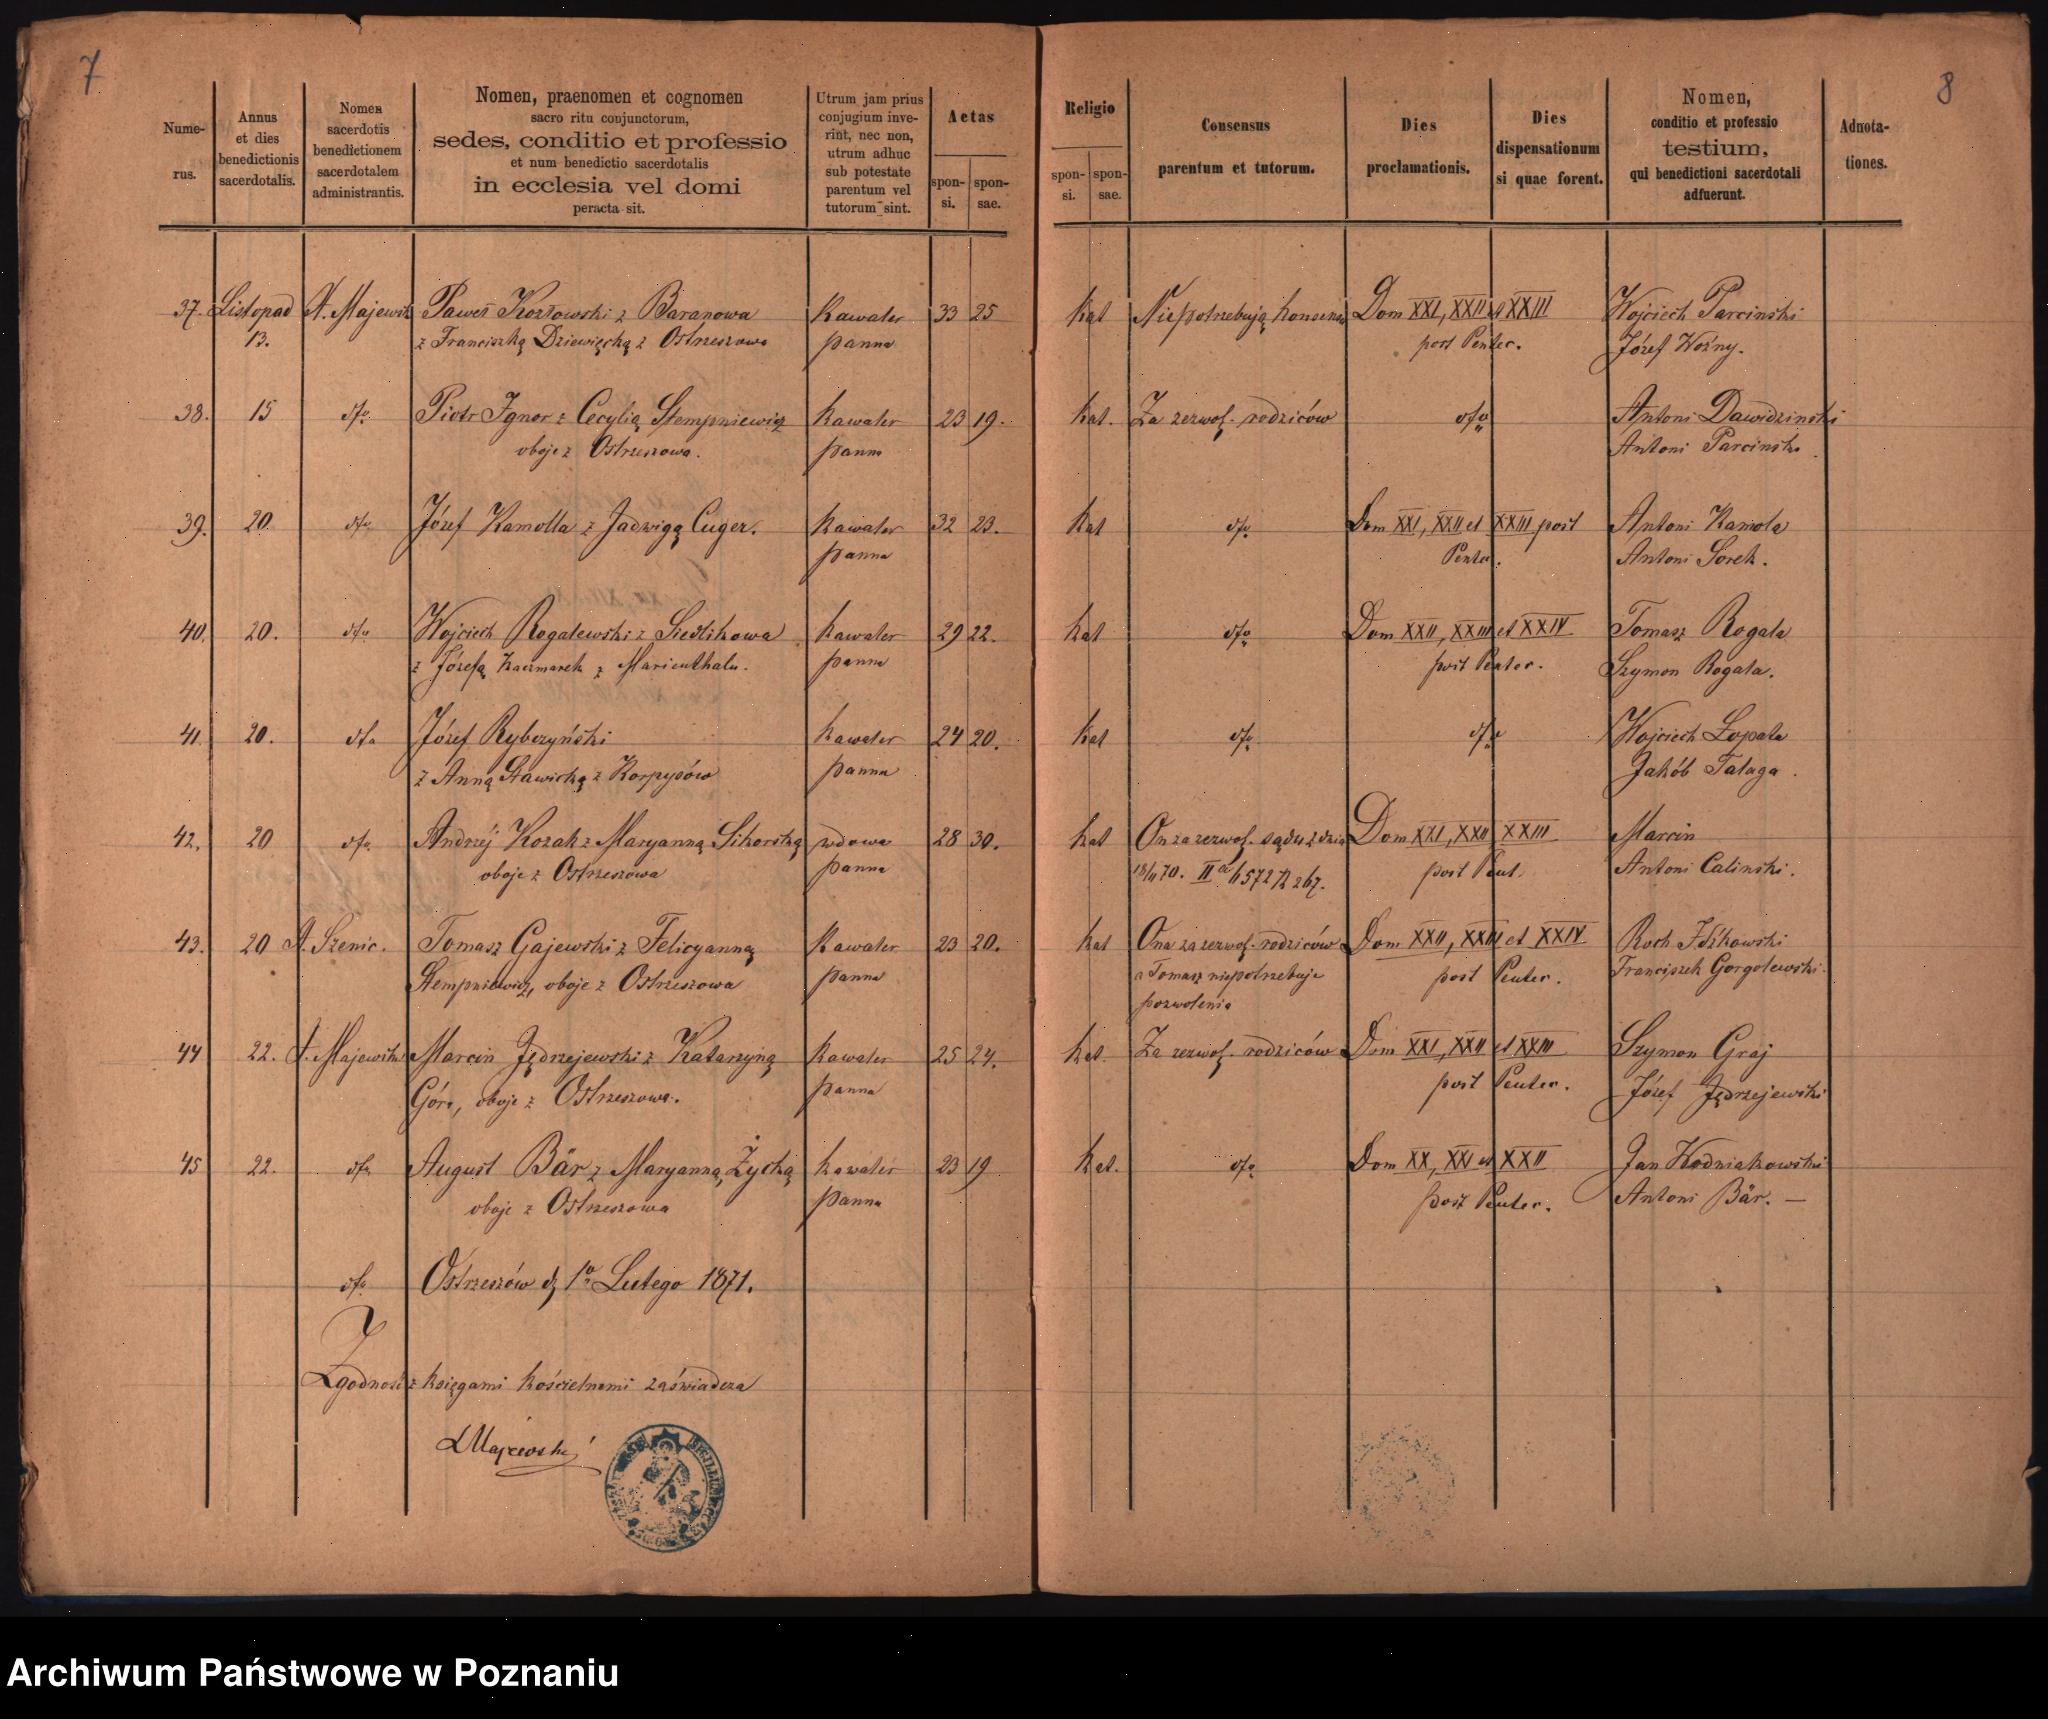 7
8
Nume-
rus.
Annus
et dies
benedictionis
sacerdotalis.
Nomen
sacerdotis
benedictionem
sacerdotalem
administrantis.
Nomen, praenomen et cognomen
sacro ritu conjunctorum,
sedes, conditio et professio
et num benedictio sacerdotalis
in ecclesia vel domi
peracta sit.
Utrum jam prius
conjugium inve-
rint, nec non,
utrum adhuc
sub potestate
parentum vel
tutorum sint.
Aetas
spon-
si.
spon-
sae.
Religio
spon-
si.
spon-
sae.
Consensus
parentum et tutorum.
Dies
proclamationis.
Dies
dispensationum
si quae forent.
Nomen,
conditio et professio
testium,
qui benedictioni sacerdotali
adfuerunt.
Adnota-
tiones.
37. Listopad X. Majewsk Paweł Kozłowski z Baranowa Kawaler 33 25 Kat Niepotrzebują konsensu Dom XXI, XXII et XXIII Wojciech Parcinski
13. z Franciszką Dziewięcką z Ostrzeszowa panna post Penter. Józef Woźny.
38. 15 dto Piotr Ignor z Cecylią Stempniewicz Kawaler 23 19. Kat. Za zezwol. rodziców dto Antoni Dawidzinski
oboje z Ostrzeszowa. panna Antoni Parcinski
39. 20. dto Józef Kamolla z Jadwigą Cuger. Kawaler 32 23. Kat dto Dom XXI, XXII et XXIII post Antoni Kamola
panna Penter. Antoni Sorek.
40. 20. dto Wojciech Rogalewski z Siedlikowa Kawaler 29 22. Kat dto Dom XXII, XXIII et XXIV Tomasz Rogala
z Józefą Kaczmarek z Marienthalu. panna post Penter. Szymon Rogala.
41. 20. dto Józef Rybczyński Kawaler 24 20. Kat dto dto Wojciech Łopata
z Anną Sławicką z Korpysów panna Jakób Talaga.
42. 20 dto Andrzéj Kozak z Maryanną Sikorską wdowa 28 30. Kat On za zezwol. sądu z dnia Dom XXI, XXII XXIII Marcin
oboje z Ostrzeszowa panna 18/11 70. II a 6572 267. post Pent. Antoni Calinski.
43. 20 X. Szenic. Tomasz Gajewski z Felicyanną Kawaler 23 20. Kat Ona za zezwol. rodziców Dom XXII, XXIII et XXIV Roch Iżkowski
Stempniewicz, oboje z Ostrzeszowa panna a Tomasz niepotrzebuje post Penter. Franciszek Gorgolewski.
pozwolenia
44 22. X. Majewski Marcin Jędrzejewski z Katarzyną Kawaler 25 24. Kat. Za zezwol. rodziców Dom XXI, XXII et XXIII Szymon Graj
Góra, oboje z Ostrzeszowa. panna post Penter. Józef Jędrzejewski
45 22. dto August Bär z Maryanną Żychą Kawaler 23 19 Kat. dto Dom XX, XXI et XXII Jan Wodniakowski
oboje z Ostrzeszowa panna post Penter. Antoni Bär. —
dto Ostrzeszów d. 1o Lutego 1871.
Zgodność z księgami kościelnemi zaświadcza
Majewski
Archiwum Państwowe w Poznaniu